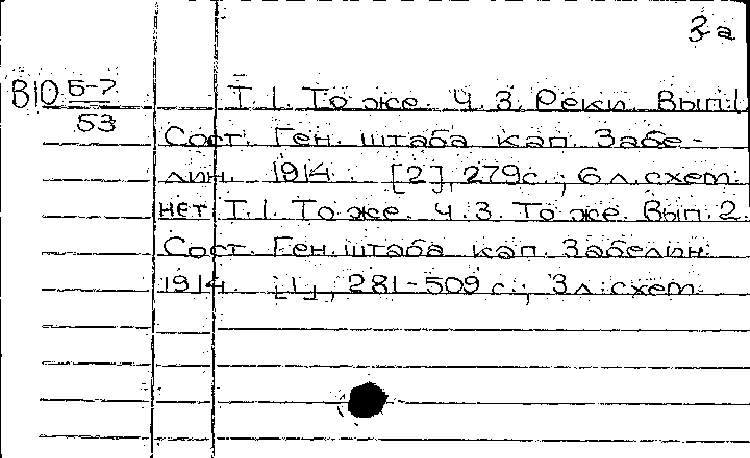 3а
В10 Б-7
53
Т. 1. То же. Ч. 3. Реки. Вып. 1.
Сост. Ген. штаба кап. Забе-
лин. 1914. [2], 279 с.; 6 л. схем.
нет Т. 1. То же. Ч. 3. То же. Вып. 2.
Сост. Ген. штаба кап. Забелин.
1914. [1], 281-509 с.; 3 л. схем.